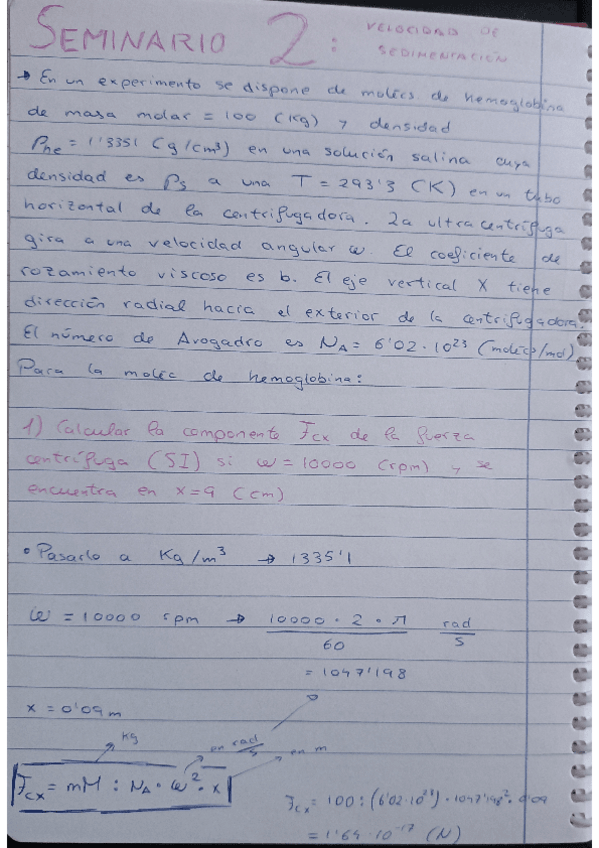 SEMINARIO 2: VELOCIDAD DE
SEDIMENTACIÓN
→ En un experimento se dispone de molécs de hemoglobina
de masa molar = 100 (kg) y densidad
ρhe = 1'3351 (g/cm³) en una solución salina cuya
densidad es ρs a una T = 293'3 (K) en un tubo
horizontal de la centrifugadora. La ultracentrífuga
gira a una velocidad angular ω. El coeficiente de
rozamiento viscoso es b. El eje vertical X tiene
dirección radial hacia el exterior de la centrifugadora.
El número de Avogadro es NA = 6'02·10²³ (molécs/mol)
Para la moléc de hemoglobina:
1) Calcular la componente Fcx de la fuerza
centrífuga (SI) si ω = 10000 (rpm) y se
encuentra en x = 9 (cm)
• Pasarlo a Kg/m³ → 1335'1
ω = 10000 rpm → 10000 · 2 · π rad
60 s
= 1047'198
x = 0'09 m
kg en rad/s en m
Fcx = mM : NA · ω² · x
Fcx = 100 : (6'02·10²³) · 1047'198² · 0'09
= 1'64 · 10⁻¹⁷ (N)